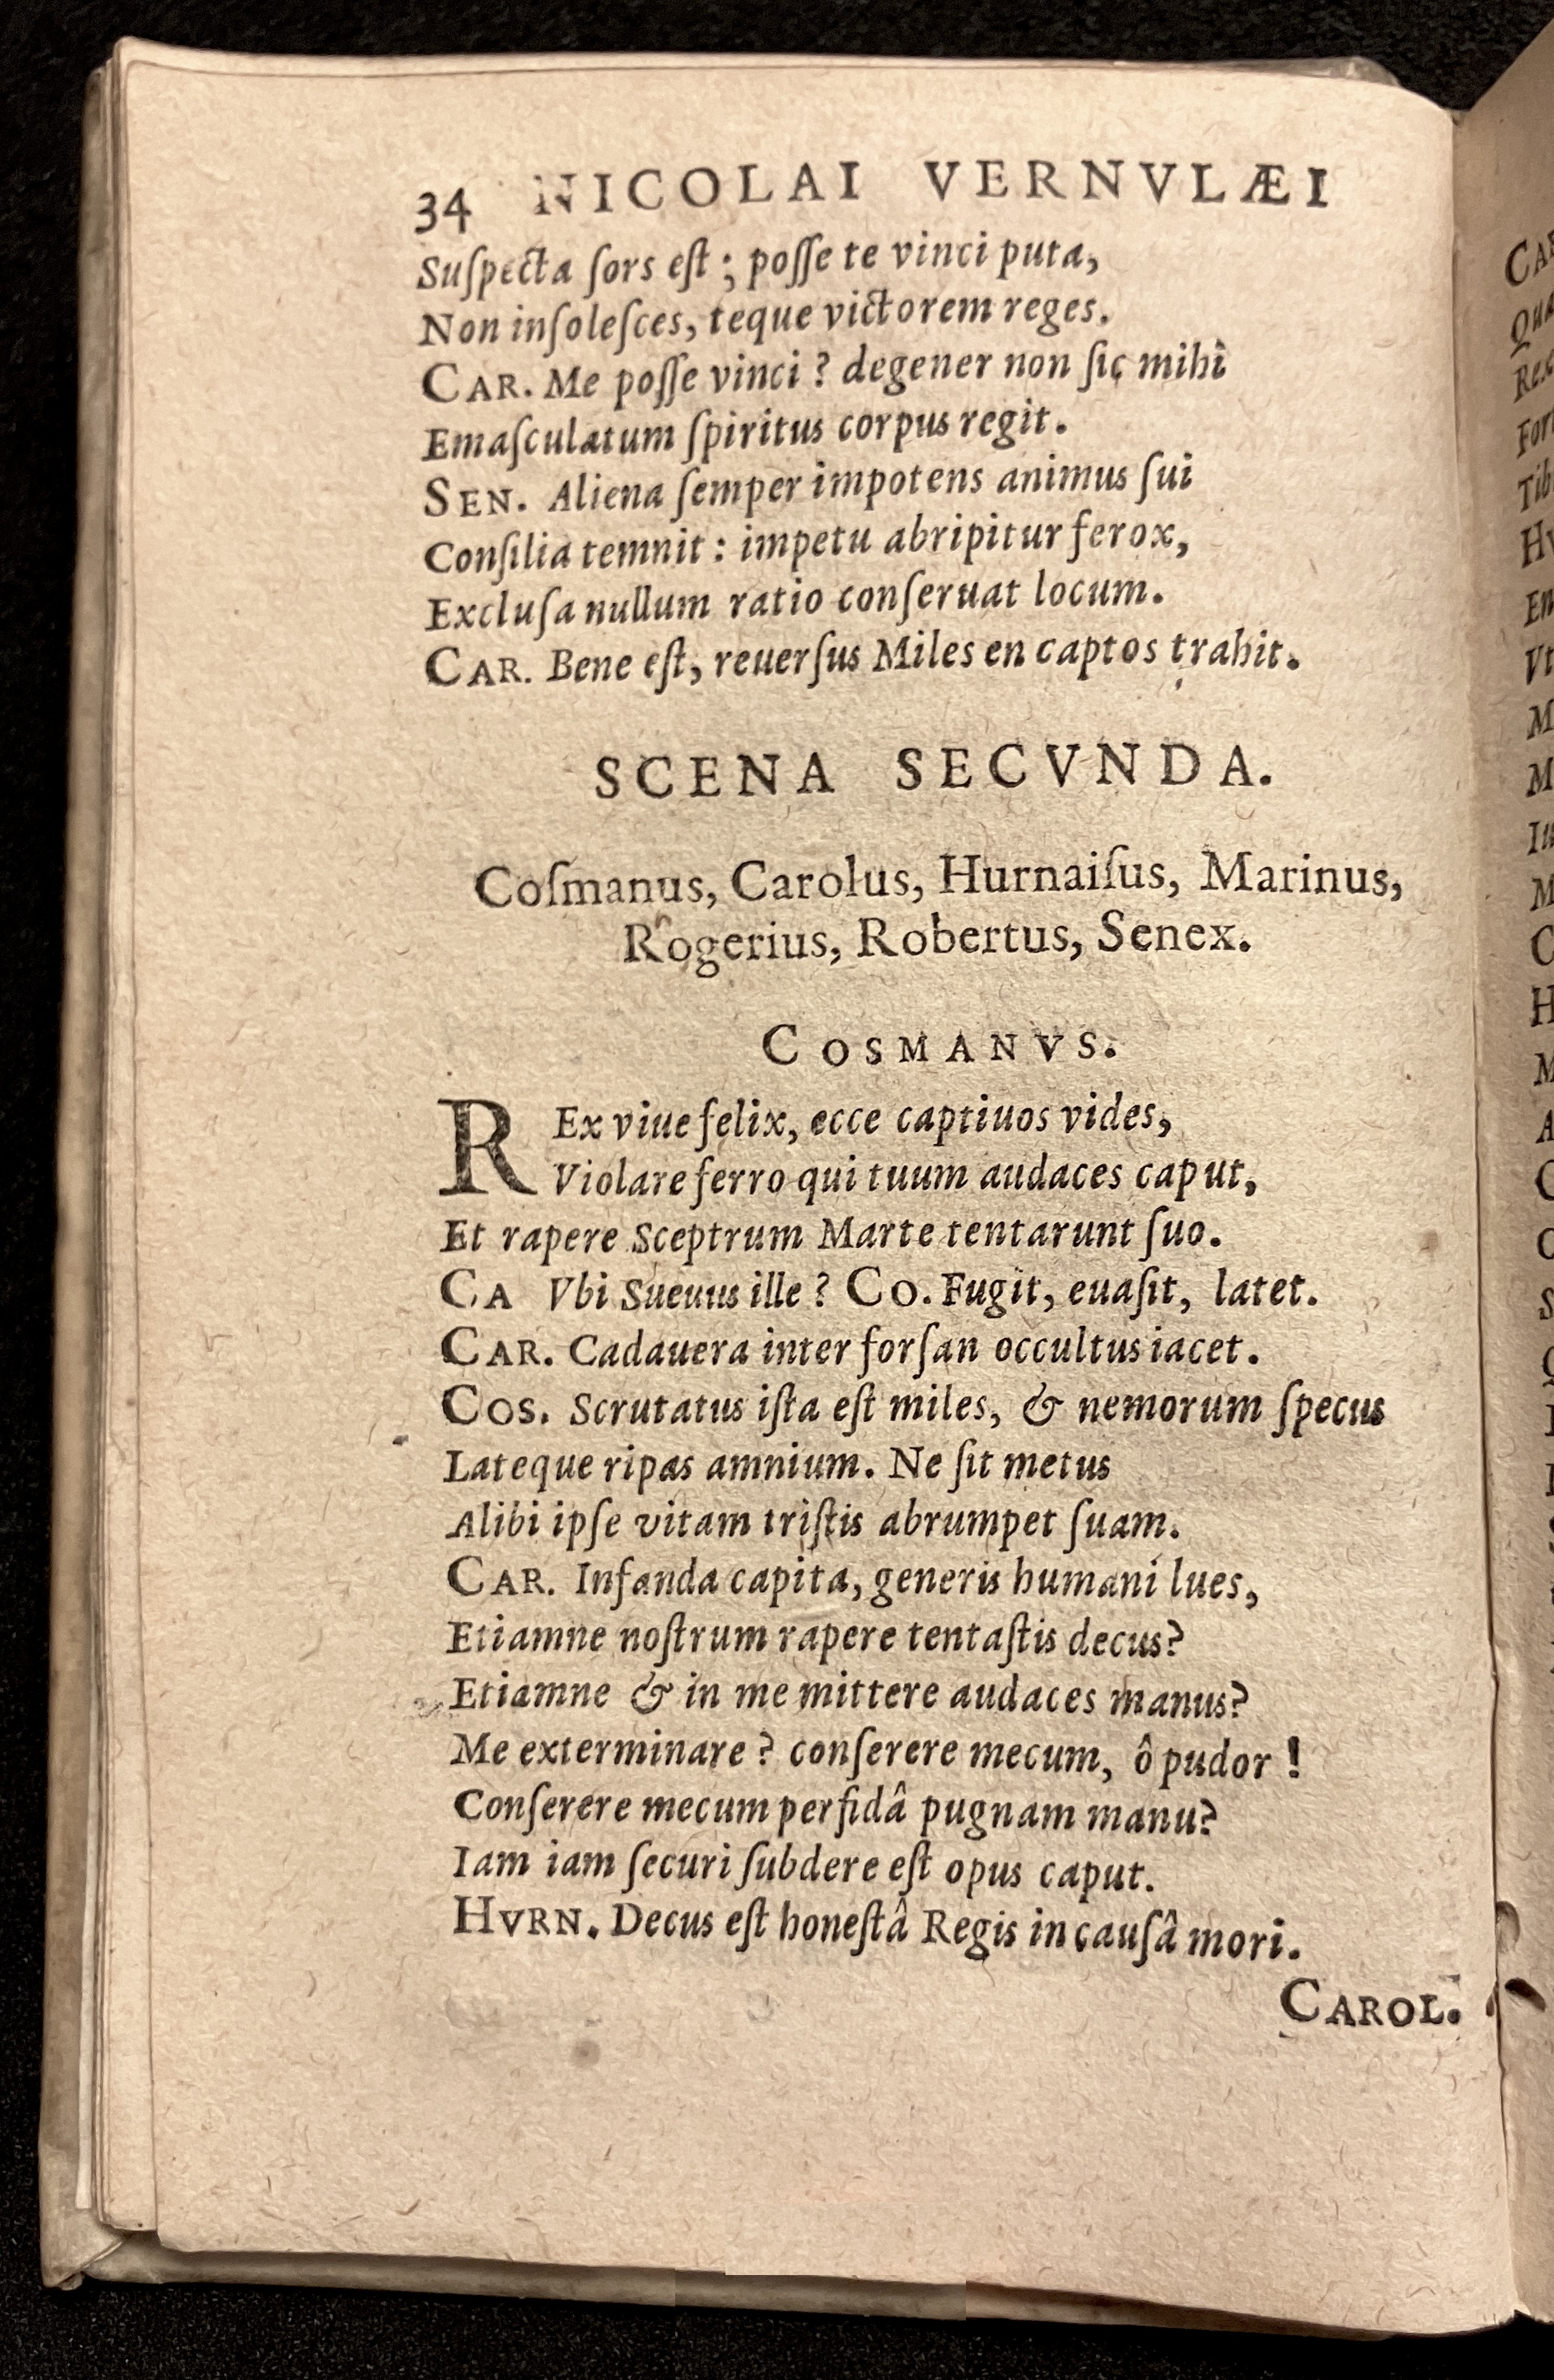 34 NICOLAI VERNVLÆI
Suſpecta ſors eſt; poſſe te vinci puta,
Non inſoleſces, teque victorem reges.
CAR. Me poſſe vinci? degener non ſic mihi
Emaſculatum ſpiritus corpus regit.
SEN. Aliena ſemper impotens animus ſui
Conſilia temnit: impetu abripitur ferox,
Excluſa nullum ratio conſeruat locum.
CAR. Bene eſt, reuerſus Miles en captos trahit.
SCENA SECVNDA.
Coſmanus, Carolus, Hurnaiſus, Marinus,
Rogerius, Robertus, Senex.
COSMANVS.
REx viue felix, ecce captiuos vides,
Violare ferro qui tuum audaces caput,
Et rapere Sceptrum Marte tentarunt ſuo.
CA Vbi Sueuus ille? CO. Fugit, euaſit, latet.
CAR. Cadauera inter forſan occultus iacet.
COS. Scrutatus iſta eſt miles, & nemorum ſpecus
Lateque ripas amnium. Ne ſit metus
Alibi ipſe vitam triſtis abrumpet ſuam.
CAR. Infanda capita, generis humani lues,
Etiamne noſtrum rapere tentaſtis decus?
Etiamne & in me mittere audaces manus?
Me exterminare? conſerere mecum, ô pudor!
Conſerere mecum perfidâ pugnam manu?
Iam iam ſecuri ſubdere eſt opus caput.
HVRN. Decus eſt honeſtâ Regis in cauſâ mori.
CAROL.